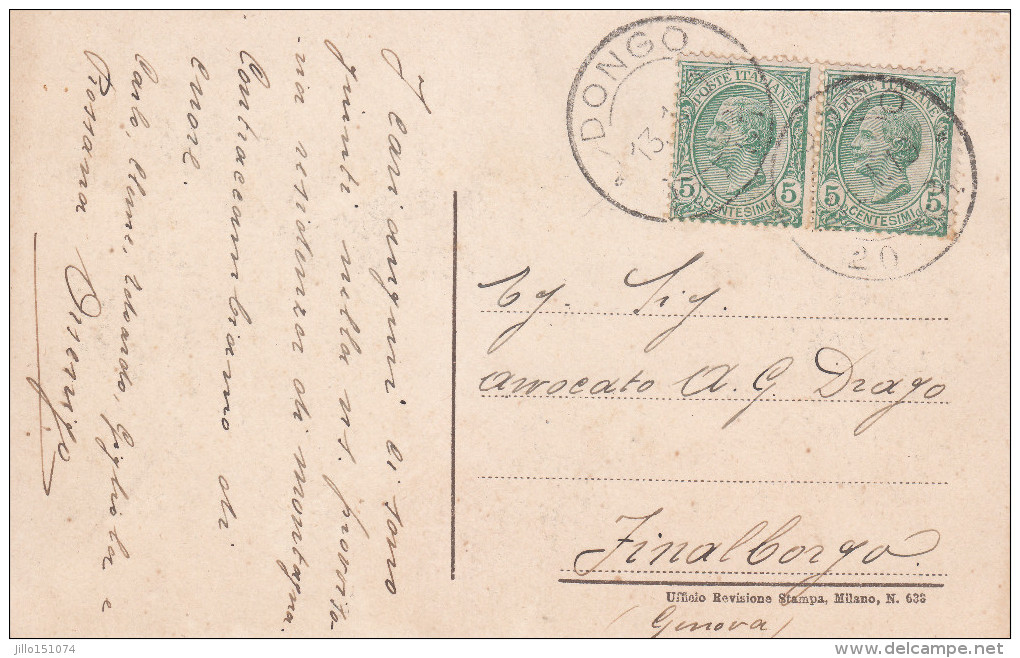 I cari auguri ci sono
giunti nella ns. provviso-
ria residenza di montagna.
Contraccambiamo di
cuore
Carlo, Edoardo, Gigliola e
Rossana
DONGO
13.
20
POSTE ITALIANE
5 CENTESIMI 5
POSTE ITALIANE
5 CENTESIMI 5
Eg. Sig.
Avvocato A. G. Drago
Finalborgo.
Ufficio Revisione Stampa, Milano, N. 633
(Genova)
jillo151074
delcampe.net